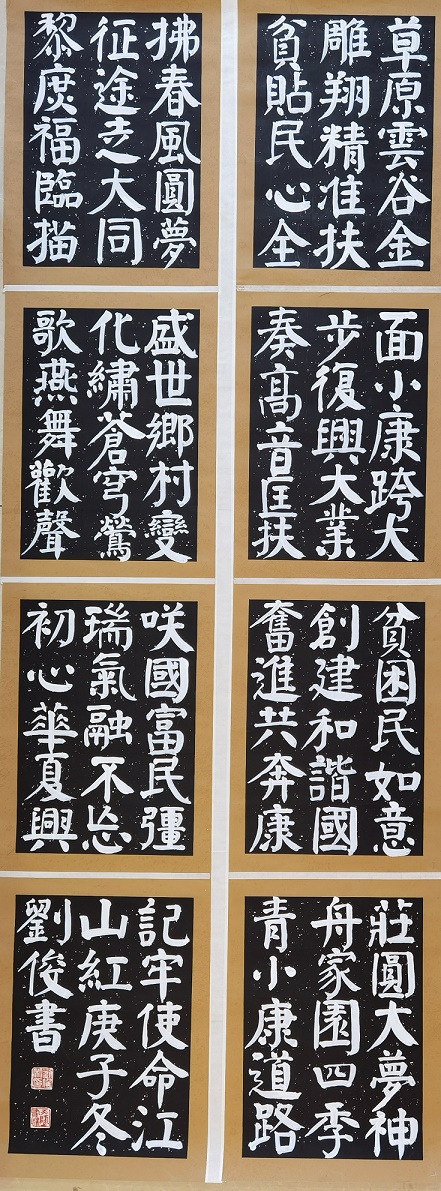 草原雲谷金
雕翔精准扶
貧貼民心全
面小康跨大
步復興大業
奏高音匡扶
貧困民如意
創建和諧國
奮進共奔康
莊圓大夢神
舟家園四季
青小康道路
拂春風圓夢
征途走大同
黎庶福臨描
盛世鄉村變
化繡蒼穹鶯
歌燕舞歡聲
咲國富民彊
瑞氣融不忘
初心華夏興
記牢使命江
山紅庚子冬
劉俊書